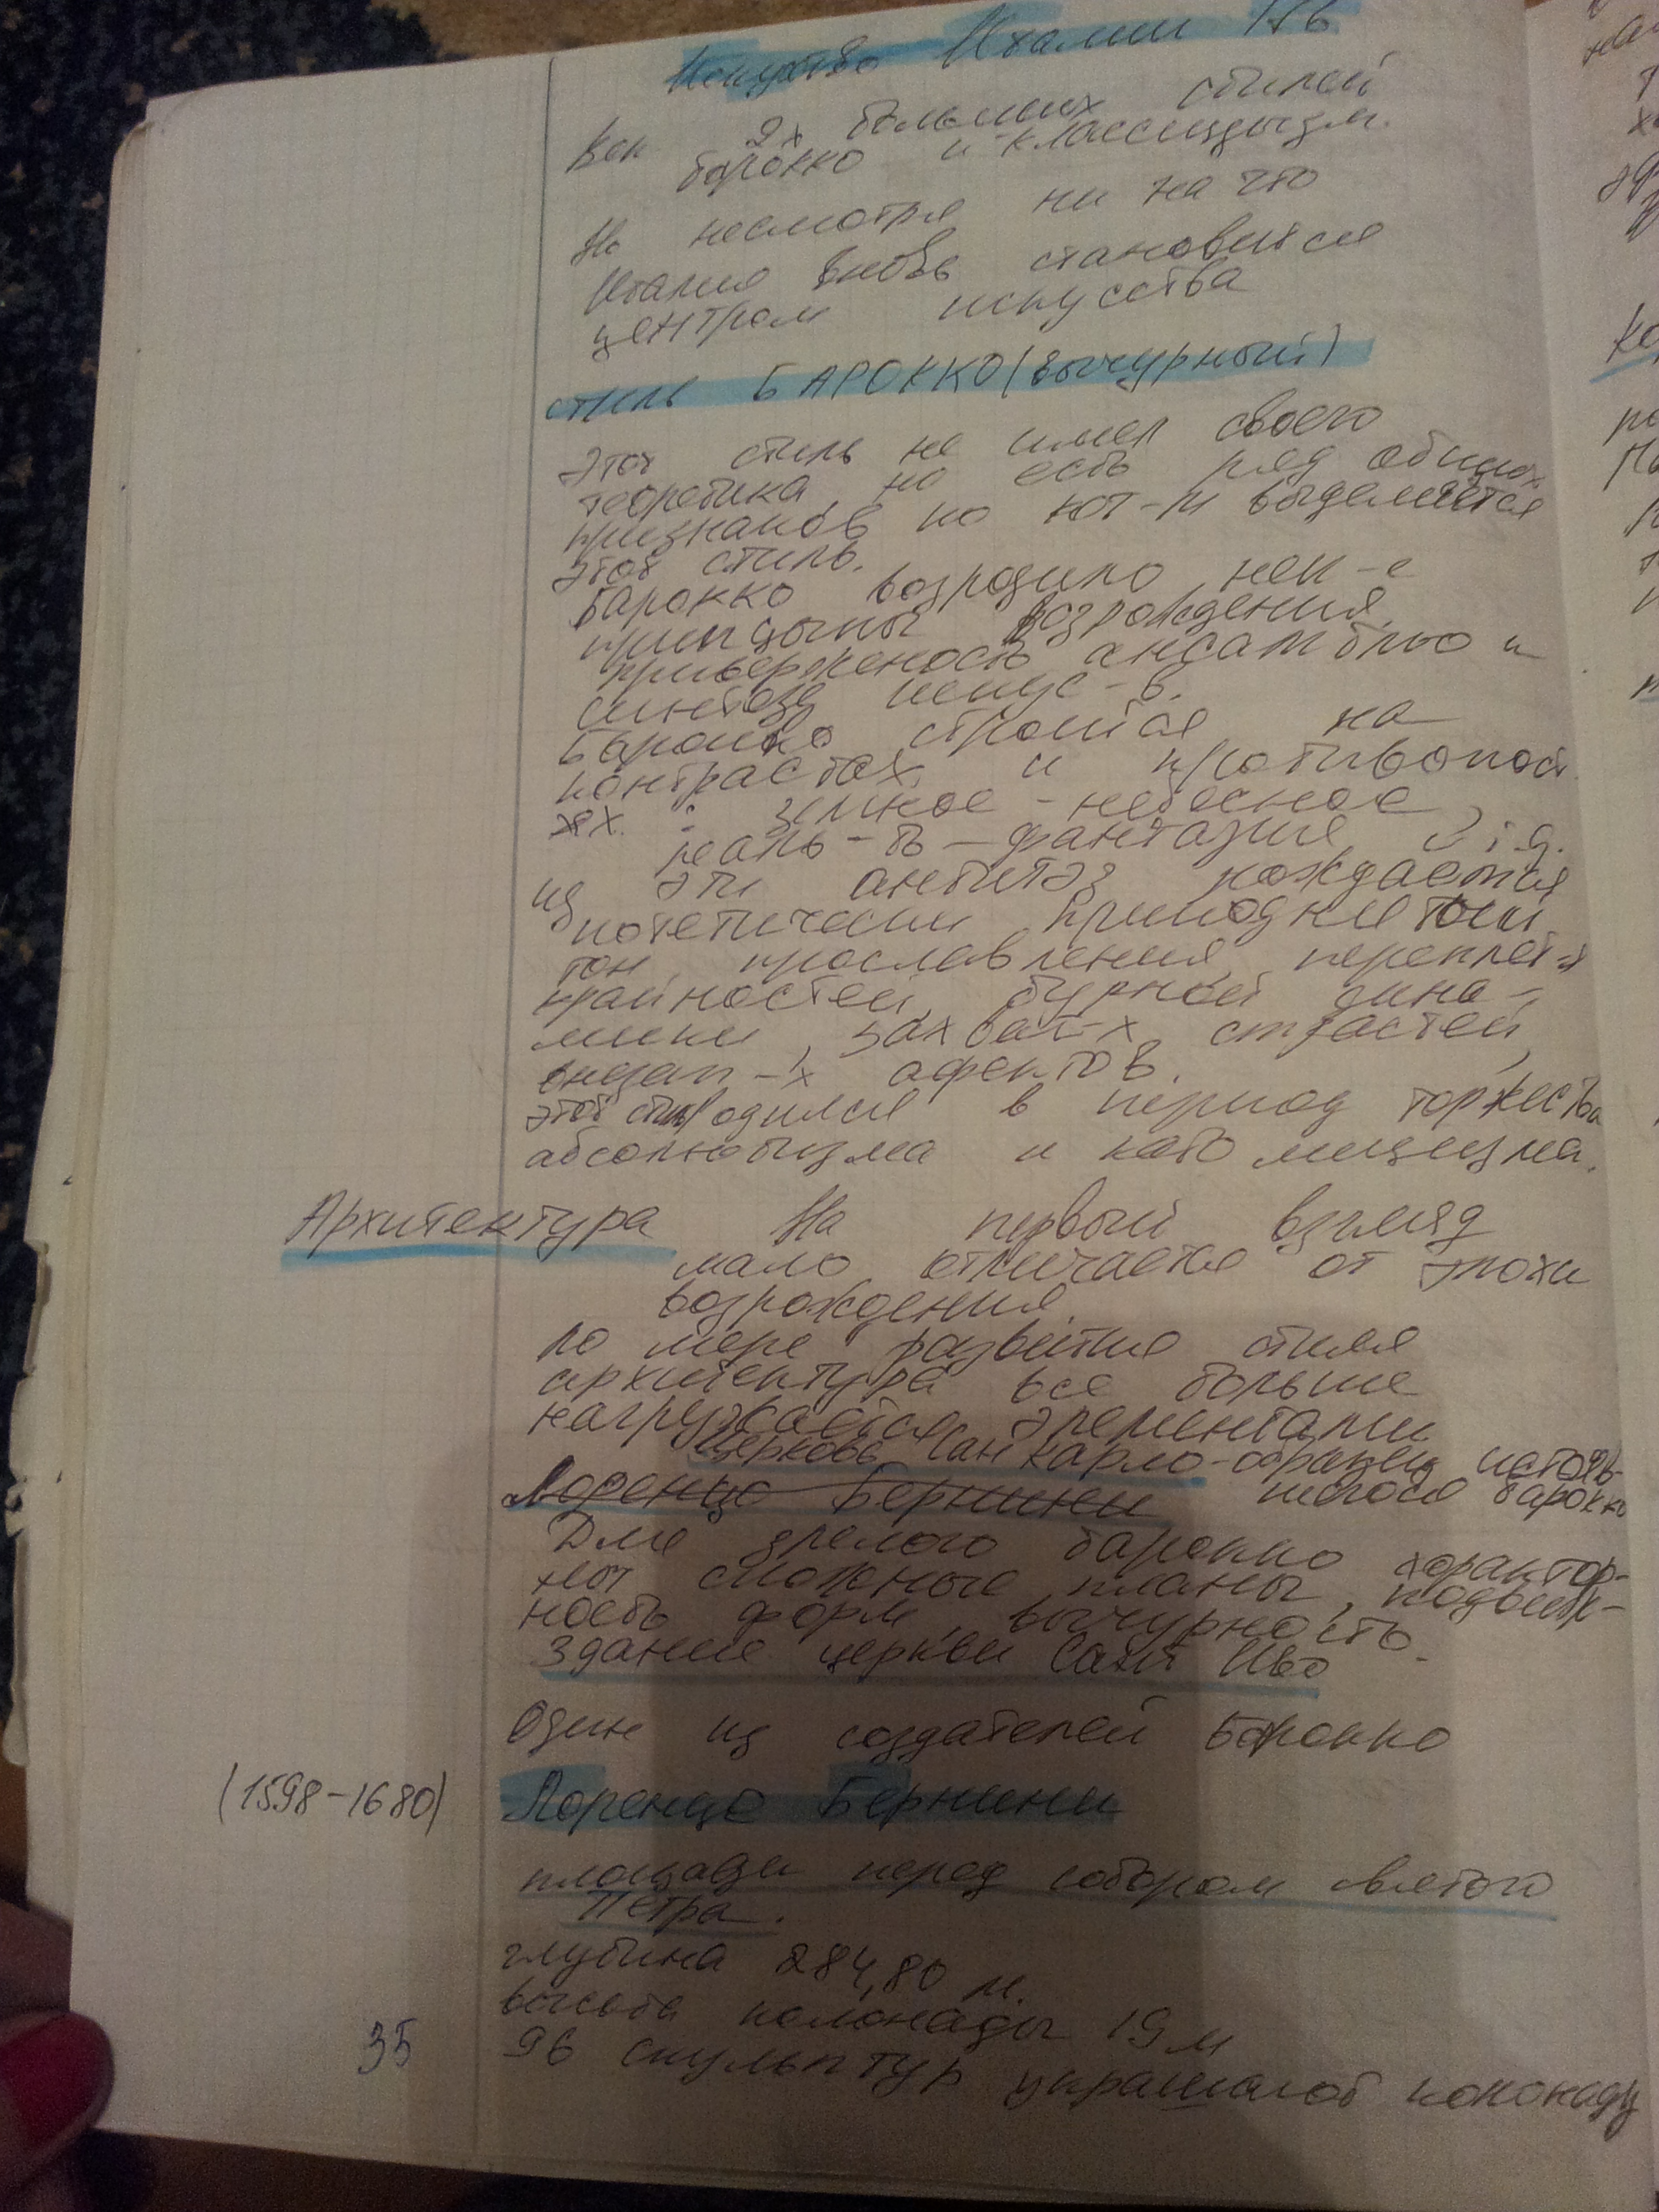 Искусство Италии 17в
Век 2х больших стилей
барокко и классицызм.
Но несмотря ни на что
Италия вновь становится
центром искусства
стиль БАРОККО (вычурный)
Этот стиль не имел своего
теоретика, но есть ряд общих
признаков по кот-м выделяется
этот стиль.
Барокко возродило нек-е
принцыпы Возрождения,
приверженость ансамблю и
синтезу искус-в.
Барокко строится на
контрастах и противопост.
ях. : земное - небесное,
реаль-ть - фантазия и т.д.
из эти антитэз рождается
потетически приподнятый
тон, прославления, переплет-я
крайностей, бурной дина-
мики, захват-х страстей,
внезап-х афектов.
этот стиль родился в период торжества
абсолютизма и католицизма.
Архитектура На первый взгляд
мало отличается от эпохи
возрождения.
По мере развития стиля
архитектура все больше
нагружается элементами
Церковь Сан Карло - образец истояв-
шегося барокко
Лоренцо Бернини
Для зрелого барокко характер-
ны сложные планы, подвиж-
ность форм, вычурность.
Здание церкви Сант Иво
Один из создателей Барокко
(1598-1680) Лоренцо Бернини
площади перед собором святого
Петра.
глубина 284,80 м.
высота колонады 19 м
35 96 скульптур украшают колонаду